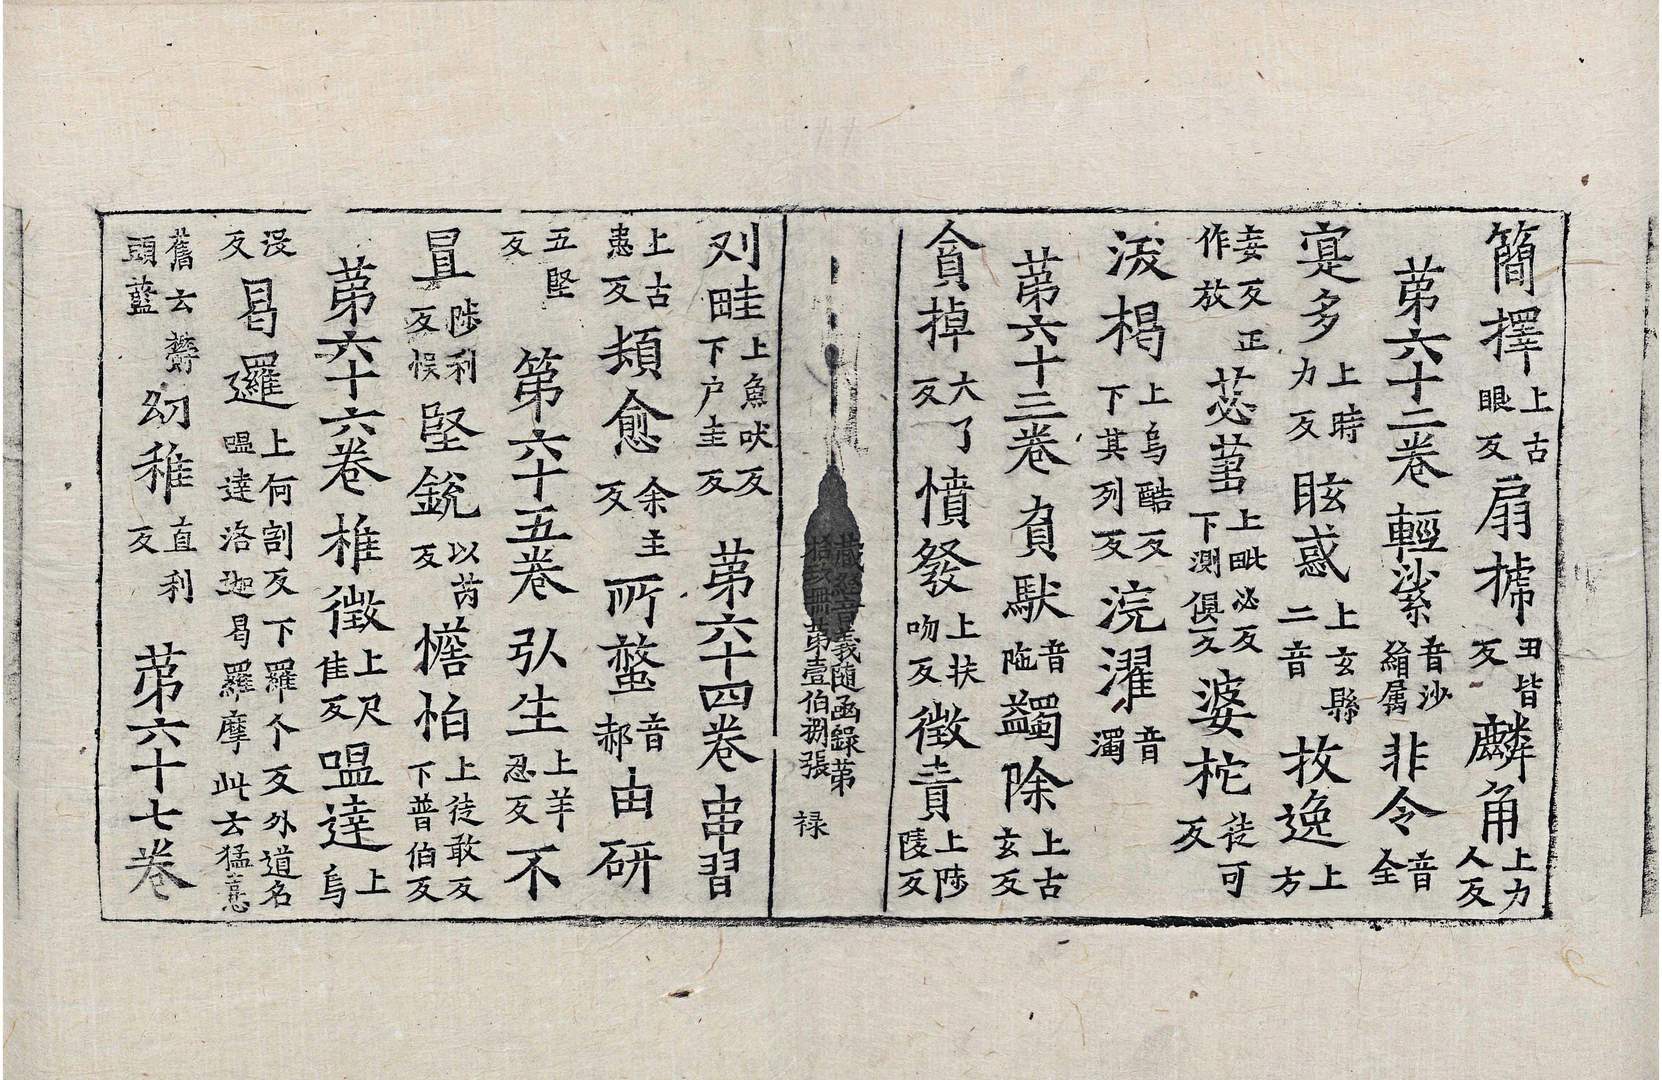 簡擇上古眼反扇搋丑皆反麟角上力人反
第六十二卷輕鯊音沙䋄属非令音全
寔多上時力反眩惑上玄縣二音放逸上方
妄反正作放苾蒭上毗必反下測俱反婆柁徒可反
泼楬上烏酷反下其列反浣濯音濁
第六十三卷食獸音陁蠲除上古玄反
貪掉大了反憤發上扶吻反徵責上陟陵反
藏經音義隨函録第
拾玖冊第壹伯捌張 禄
刈畦上魚吠反下户圭反第六十四卷串習
上古患反類愈余主反所螫音郝由研
五堅反第六十五卷弘生上羊忍反不
冝陟利反悮堅銳以芮反憺怕上徒敢反下普伯反
第六十六卷椎徵上尺隹反嗢達上烏
没反曷邏上何割反下羅个反外道名嗢達洛迦曷羅摩此云猛憙
舊云欝頭藍幼稚直利反第六十七卷